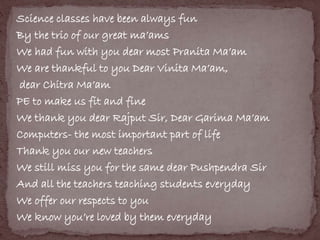 Science classes have been always fun
By the trio of our great ma'ams
We had fun with you dear most Pranita Ma'am
We are thankful to you Dear Vinita Ma'am,
dear Chitra Ma'am
PE to make us fit and fine
We thank you dear Rajput Sir, Dear Garima Ma'am
Computers- the most important part of life
Thank you our new teachers
We still miss you for the same dear Pushpendra Sir
And all the teachers teaching students everyday
We offer our respects to you
We know you're loved by them everyday